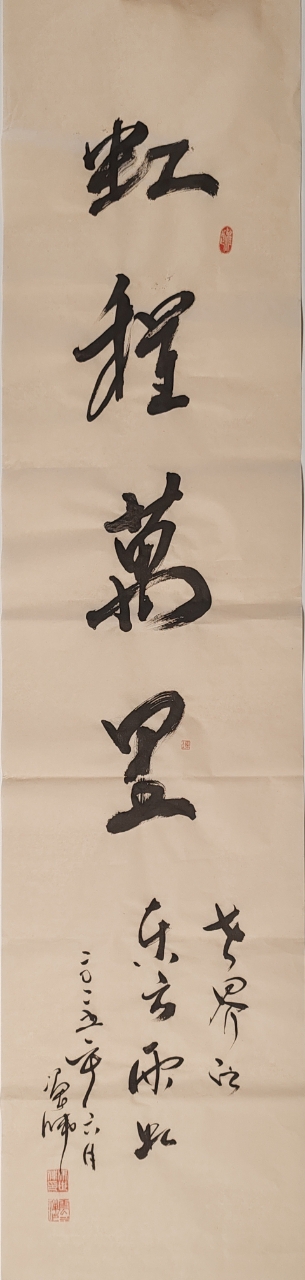 虹程萬里
世界的
東方彩虹
二〇一五年六月